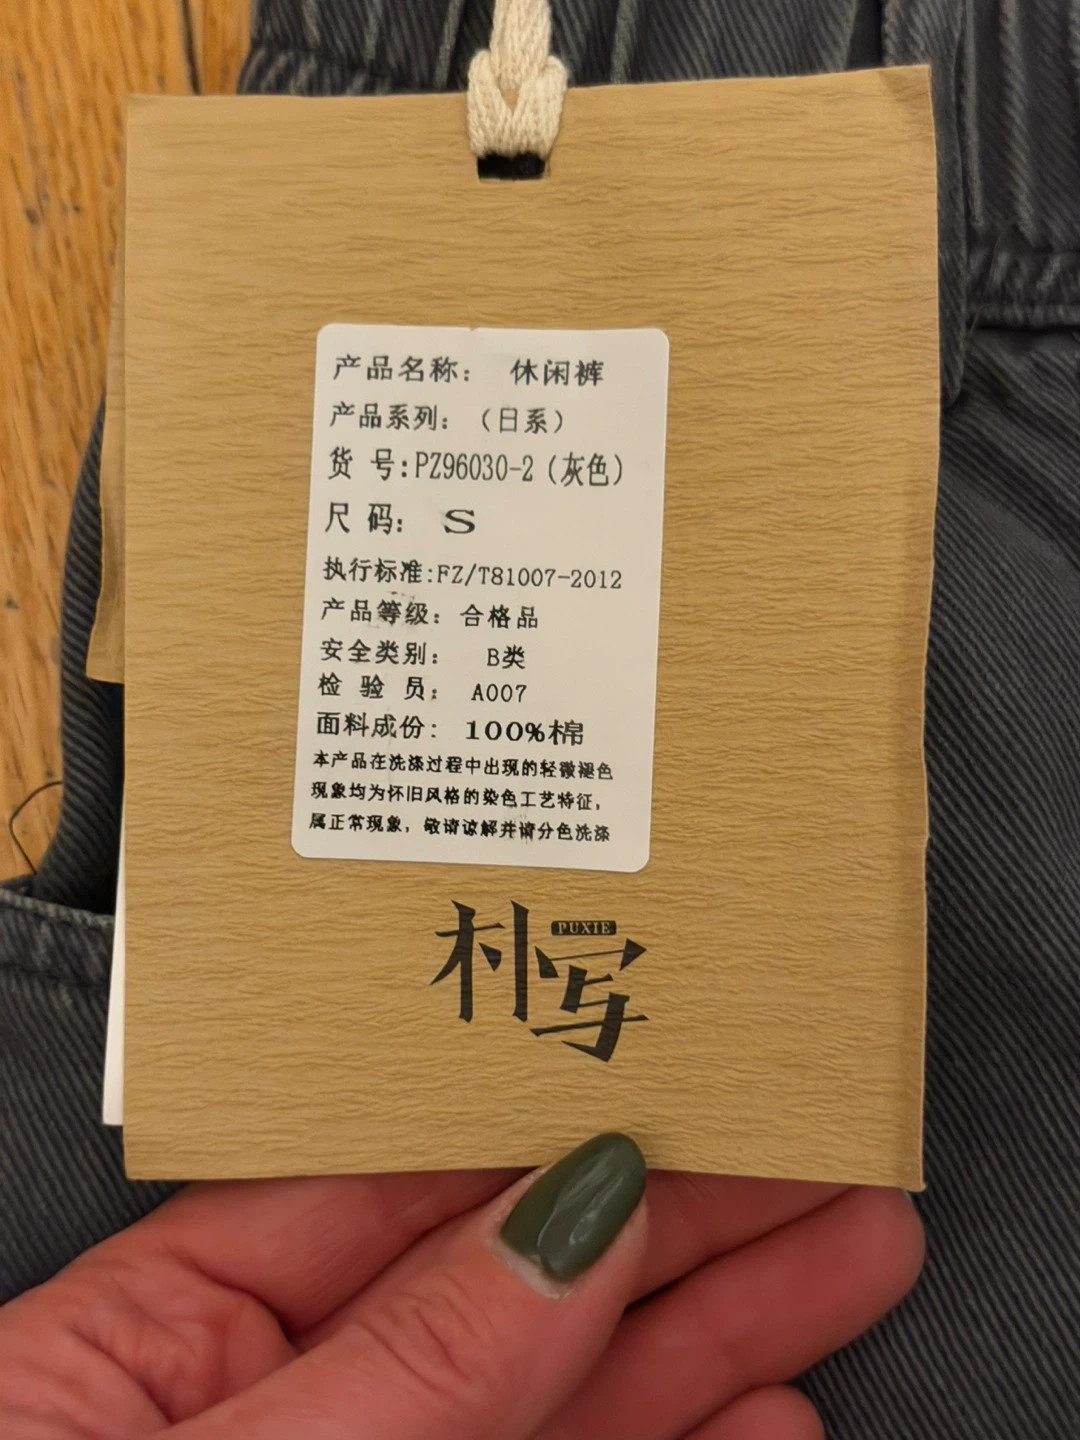 产品名称： 休闲裤
产品系列：（日系）
货 号:PZ96030-2（灰色）
尺 码： S
执行标准:FZ/T81007-2012
产品等级：合格品
安全类别： B类
检 验 员： A007
面料成份: 100%棉
本产品在洗涤过程中出现的轻微褪色
现象均为怀旧风格的染色工艺特征，
属正常现象，敬请谅解并请分色洗涤
朴写
PUXIE